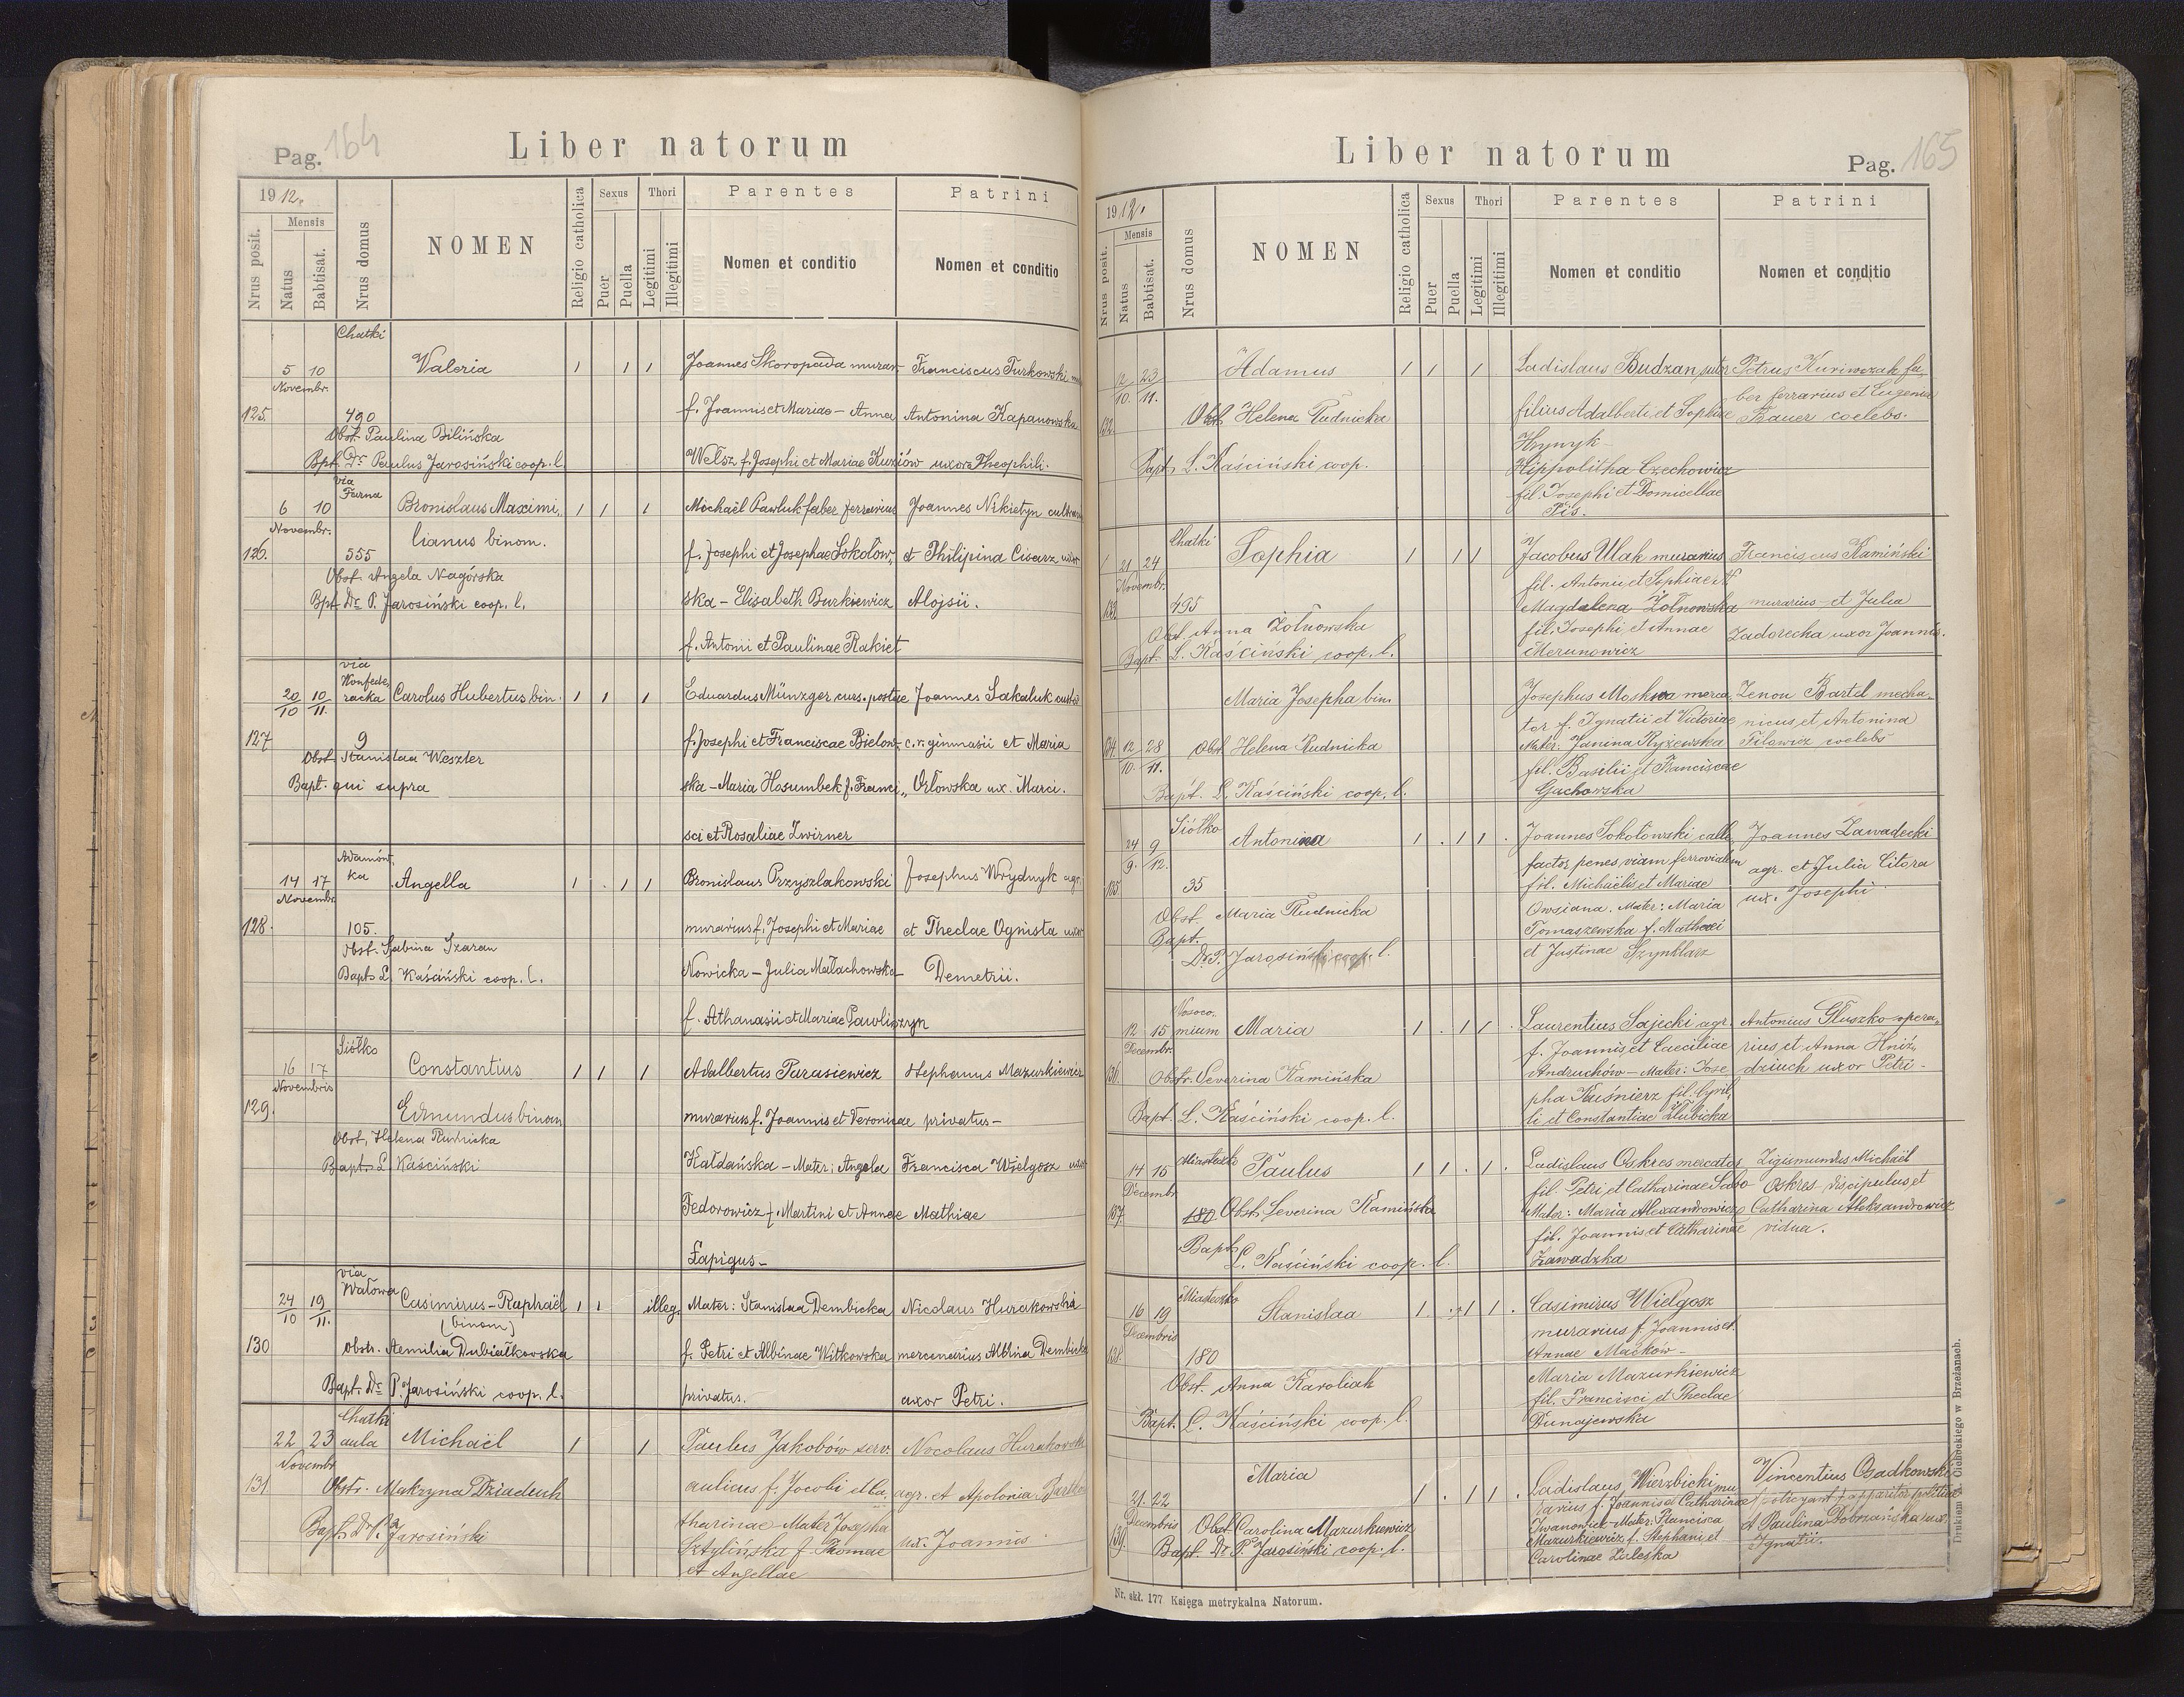 Pag. 164
Liber natorum
1912.
Nrus posit.
Mensis
Natus
Babtisat.
Nrus domus
NOMEN
Religio catholica
Sexus
Puer
Puella
Thori
Legitimi
Illegitimi
Parentes
Nomen et conditio
Patrini
Nomen et conditio
Chatki
5 10 Valeria 1 1 1 Joannes Skoropada murar. Franciscus Turkowski
Novembr.
125. 490 f. Joannis et Mariae - Anna Antonina Kapanowska
Obst. Paulina Bilińska
Bpt. Dr Paulus Jarosiński coop. l. Welsz f. Josephi et Mariae Kuziów uxor Theophili.
via
Farna
6 10 Bronislaus Maximi, 1 1 1 Michaël Pawluk faber ferrarius Joannes Nikietyn
Novembr. lianus binom.
126. 555 f. Josephi et Josephae Sokołow, et Philipina Cisarz uxor
Obst. Angela Nagórska
Bpt. Dr P. Jarosiński coop. l. ska - Elisabeth Burkiewicz Alojsii.
f. Antonii et Paulinae Rakiet
via
Konfede,
20/10 10/11. racka Carolus Hubertus bin. 1 1 1 Eduardus Münzger curs. postae Joannes Sakaluk custos
127 9 f. Josephi et Franciscae Bielow- c. r. gimnasii et Maria
Obst. Stanisłaa Weszter
Bapt. qui supra ska - Maria Hosumbek f. Franci,, Orłowska ux. Marci.
sci et Rosaliae Zwirner
Adamów,
ka
14 17 Angella 1 . 1 1 Bronislaus Przyszlakowski Josephus Wrydnyk agr.
Novembr.
128. 105. murarius f. Josephi et Mariae et Theclae Ognista uxor
Obst. Sabina Szaran
Bapt. L. Kaściński coop. l. Nowicka - Julia Małachowska - Demetrii.
f. Athanasii et Mariae Pawliszyn
Siółko
16 17 Constantius 1 1 1 Adalbertus Parasiewicz Stephanus Mazurkiewicz
Novembris
129. Edmundus binom murarius f. Joannis et Veronicae privatus -
Obst. Helena Rudnicka
Bapt. L. Kaściński Kałdańska - Mater: Angela Francisca Wielgosz uxor
Fedorowicz f. Martini et Annae Mathiae
Łapigus -
via
Wałowa
24/10 19/11. Casimirus - Raphaël 1 1 illeg. Mater: Stanisłaa Dembicka Nicolaus Hurakowski
(binom)
130 Obstr. Aemilia Dubiałkowska f. Petri et Albinae Witkowska mercenarius Albina Dembicka
Bapt. Dr P. Jarosiński coop. l. privatus. uxor Petri.
Chatki
22 23 aula Michaël 1 1 Paulus Jakobów serv. Nocolaus Hurakowski
Novembr.
131 Obstr. Makryna Dziaduch aulicus f. Jacobi et Ca, agr. et Apolonia
Bapt. Dr P. Jarosiński tharinae Mater Josepha ux. Joannis
Sztylińska f. Thomae
et Angellae
Liber natorum
Pag. 165
1912.
Nrus posit.
Mensis
Natus
Babtisat.
Nrus domus
NOMEN
Religio catholica
Sexus
Puer
Puella
Thori
Legitimi
Illegitimi
Parentes
Nomen et conditio
Patrini
Nomen et conditio
12/10. 23/11. Adamus 1 1 1 Ladislaus Budzan sutor Petrus Kuriwczak fa,
ber ferrarius et Eugenia
132. Obst. Helena Rudnicka filius Adalberti et Sophiae Bauer coelebs.
Hrynyk -
Bapt. L. Kaściński coop. Hippolitha Czechowicz
fil. Josephi et Domicellae
Pis.
Chatki
21 24 Sophia 1 1 1 Jacobus Ulak murarius Franciscus Kamiński
Novembr. fil. Antonii et Sophiae N
133. 495 Magdalena Żołnowska murarius - et Julia
Obst. Anna Żołnowska fil. Josephi et Annae Zadorecha uxor Joannis.
Bapt. L. Kaściński coop. l. Herunowicz
Maria Josepha bin. Josephus Moskwa merca, Zenon Bartel mecha,
tor f. Ignatii et Victoriae nicus et Antonina
134. 12/10. 28/11. Obst. Helena Rudnicka Mater: Janina Ryżewska Filowicz coelebs
fil. Basilii et Franciscae
Bapt. L. Kaściński coop. l. Gachowska
Siółko
24/9. 9/12. Antonina 1 . 1 1 . Joannes Sokołowski calle, Joannes Zawadecki
factor penes viam ferrovialem agr. et Julia Citora
135 35 fil. Michaëlis et Mariae ux. Josephi
Obst. Maria Rudnicka Owsiana. Mater: Maria
Bapt. Tomaszewska f. Mathaei
Dr P. Jarosiński coop. l. et Justinae Szynklarz
Nosoco,
12 15 mium Maria 1 . 1 1 . Laurentius Sajecki agr. Antonius Głuszko opera,
Decembr. f. Joannis et Caeciliae rius et Anna Hniź,
136. Obstr. Severina Kamińska Andruchów - Mater: Jose dziuch uxor Petri -
pha Kuśnierz fil. Cyril,
Bapt. L. Kaściński coop. l. li et Constantiae Złubicka
Miasteczko
14 15 Paulus 1 1 . 1 . Ladislaus Oskres mercator Zigismundus Michaël
Decembr. fil. Petri et Catharinae Sabo Oskres discipulus et
137. 180 Obst. Severina Kamińska Mater: Maria Alexandrowicz Catharina Aleksandrowicz
fil. Joannis et Catharinae vidua.
Bapt. L. Kaściński coop. l. Zawadzka
Miasteczko
16 19 Stanisłaa 1 . 1 1 . Casimirus Wielgosz
Decembris murarius f. Joannis et
138. 180 Annae Maćków -
Obst. Anna Karoliak Maria Mazurkiewicz
fil. Francisci et Theclae
Bapt. L. Kaściński coop. l. Dunajewska
Maria
21. 22 1 . 1 1 . Ladislaus Wierzbicki mu Vincentius Osadkowski
Decembris rarius f. Joannis et Catharinae policyant apparitor politiae
139. Obst. Carolina Mazurkiewicz Iwanowicz - Mater: Francisca et Paulina Dobrzańska ux.
Bapt. Dr P. Jarosiński coop. l. Mazurkiewicz f. Stephani et Ignatii.
Carolinae Zaleska
Nr. skł. 177 Księga metrykalna Natorum.